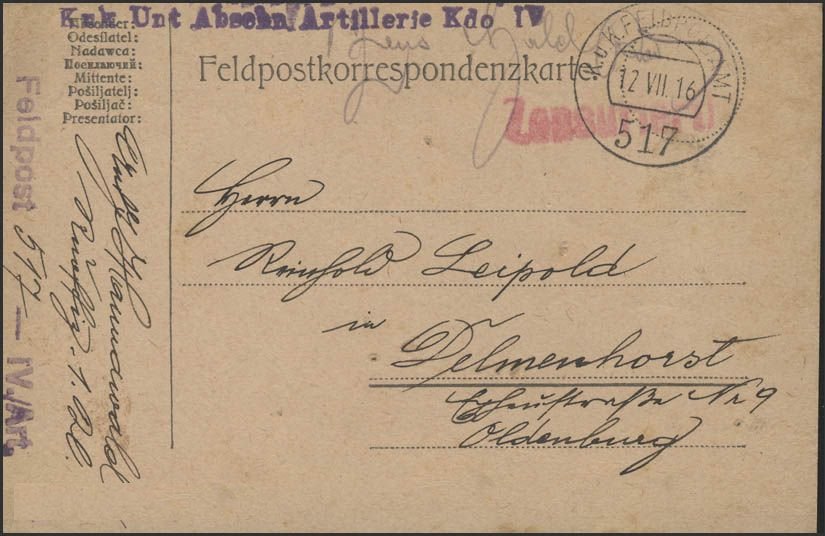 KuK Unt Abschn/Artillerie Kdo IV
Absender:
Odesílatel:
Nadawca:
Посилаючий:
Mittente:
Pošiljatelj:
Pošiljač:
Presentator:
Feldpostkorrespondenzkarte
K.u.K. FELDPOSTAMT
12 VII. 16
517
Zensuriert
Herrn
Reinhold Leipold
in
Delmenhorst
Nr 9
Oldenburg
Feldpost 517 — IV./Art